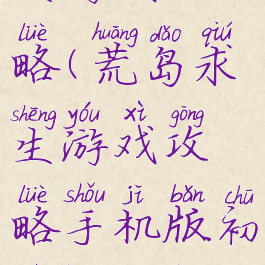 lüè huāng dǎo qiú
略(荒岛求
shēng yóu xì gōng
生游戏攻
lüè shǒu jī bǎn chū
略手机版初